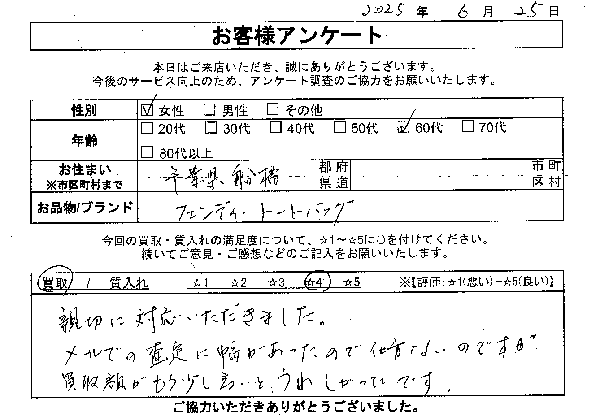 2025 年 6 月 25 日
お客様アンケート
本日はご来店いただき、誠にありがとうございます。
今後のサービス向上のため、アンケート調査のご協力をお願いいたします。
性別 ☑女性 □男性 □その他
年齢 □20代 □30代 □40代 □50代 ☑60代 □70代
□80代以上
お住まい ※市区町村まで 千葉県 船橋 都府県道 市町区村
お品物/ブランド フェンディ トートバッグ
今回の買取・質入れの満足度について、☆1～☆5に○を付けてください。
続いてご意見・ご感想などのご記入をお願いいたします。
買取 / 質入れ ☆1 ☆2 ☆3 ☆4 ☆5 ※【評価:☆1(悪い)－☆5(良い)】
親切に対応いただきました。
メールでの査定に幅があったので仕方ないのですが
買取額がもう少し高いと、うれしかったです。
ご協力いただきありがとうございました。